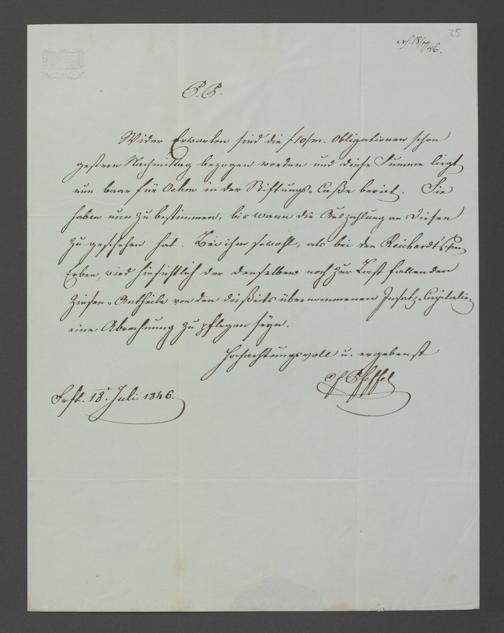 25
P. P.
Wider Erwarten sind die f 10/m. Obligationen schon
gestern Nachmittag bezogen worden und diese Summe liegt
nun baar für in der Stiftungs-Casse bereit. Sie
haben nun zu bestimmen, bis wann die Auszahlung an diesen
zu geschehen hat. Bei ihm sowohl, als bei den Reichardt'schen
Erben, wird hinsichtlich der denselben noch zur Last fallenden
Zinsen-Antheile von den diesseits übernommenen Insatz-Capitalien
eine Abrechnung zu pflegen seyn.
Hochachtungsvoll u. ergebenst
Frft. 18. Juli 1846.